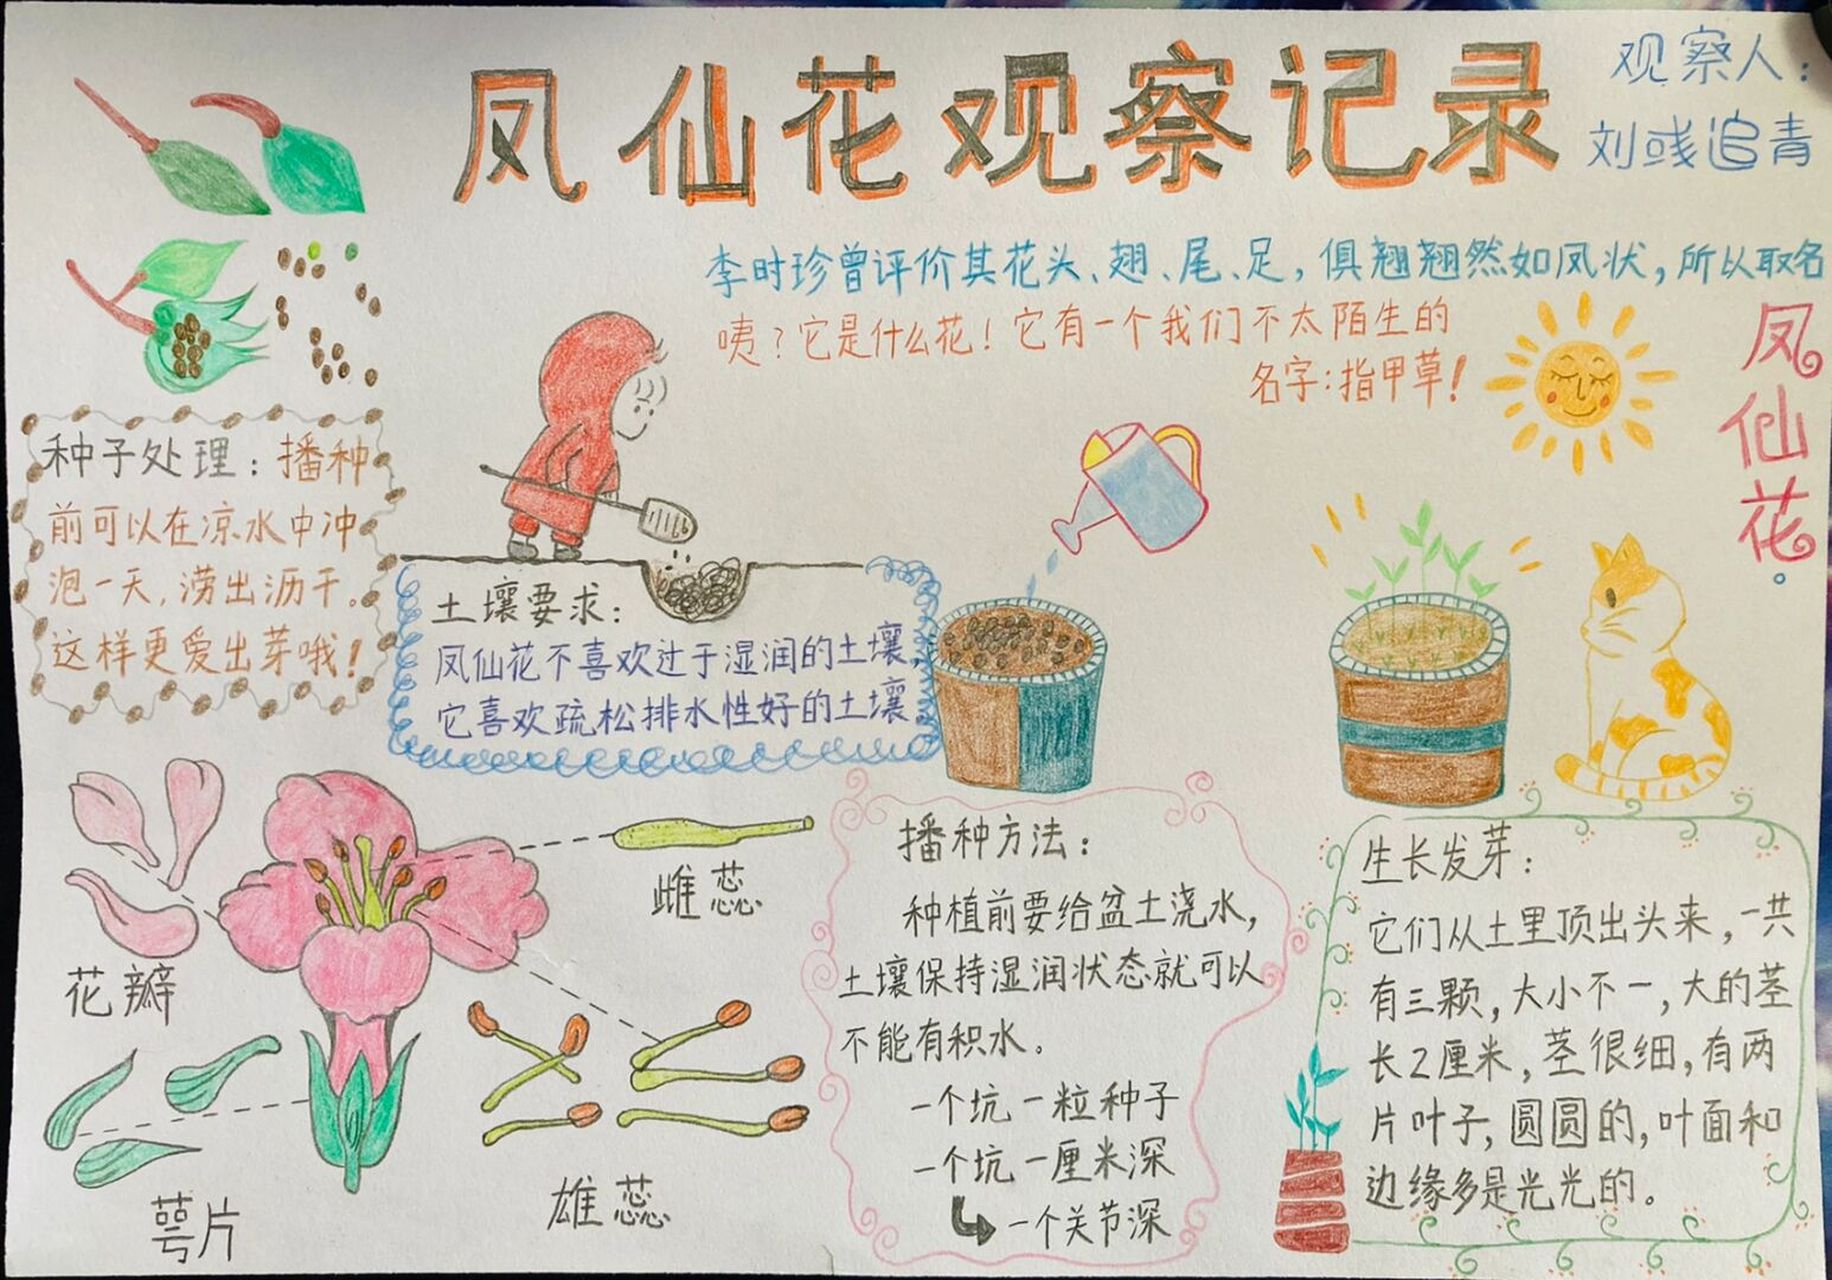 凤仙花观察记录
观察人：
刘彧追青
李时珍曾评价其花头、翅、尾、足，俱翘翘然如凤状，所以取名
凤仙花。
咦？它是什么花！它有一个我们不太陌生的
名字：指甲草！
种子处理：播种
前可以在凉水中冲
泡一天，涝出沥干。
这样更爱出芽哦！
土壤要求：
凤仙花不喜欢过于湿润的土壤，
它喜欢疏松排水性好的土壤。
花瓣
雌蕊
萼片
雄蕊
播种方法：
种植前要给盆土浇水，
土壤保持湿润状态就可以
不能有积水。
一个坑一粒种子
一个坑一厘米深
一个关节深
生长发芽：
它们从土里顶出头来，一共
有三颗，大小不一，大的茎
长2厘米，茎很细，有两
片叶子，圆圆的，叶面和
边缘多是光光的。